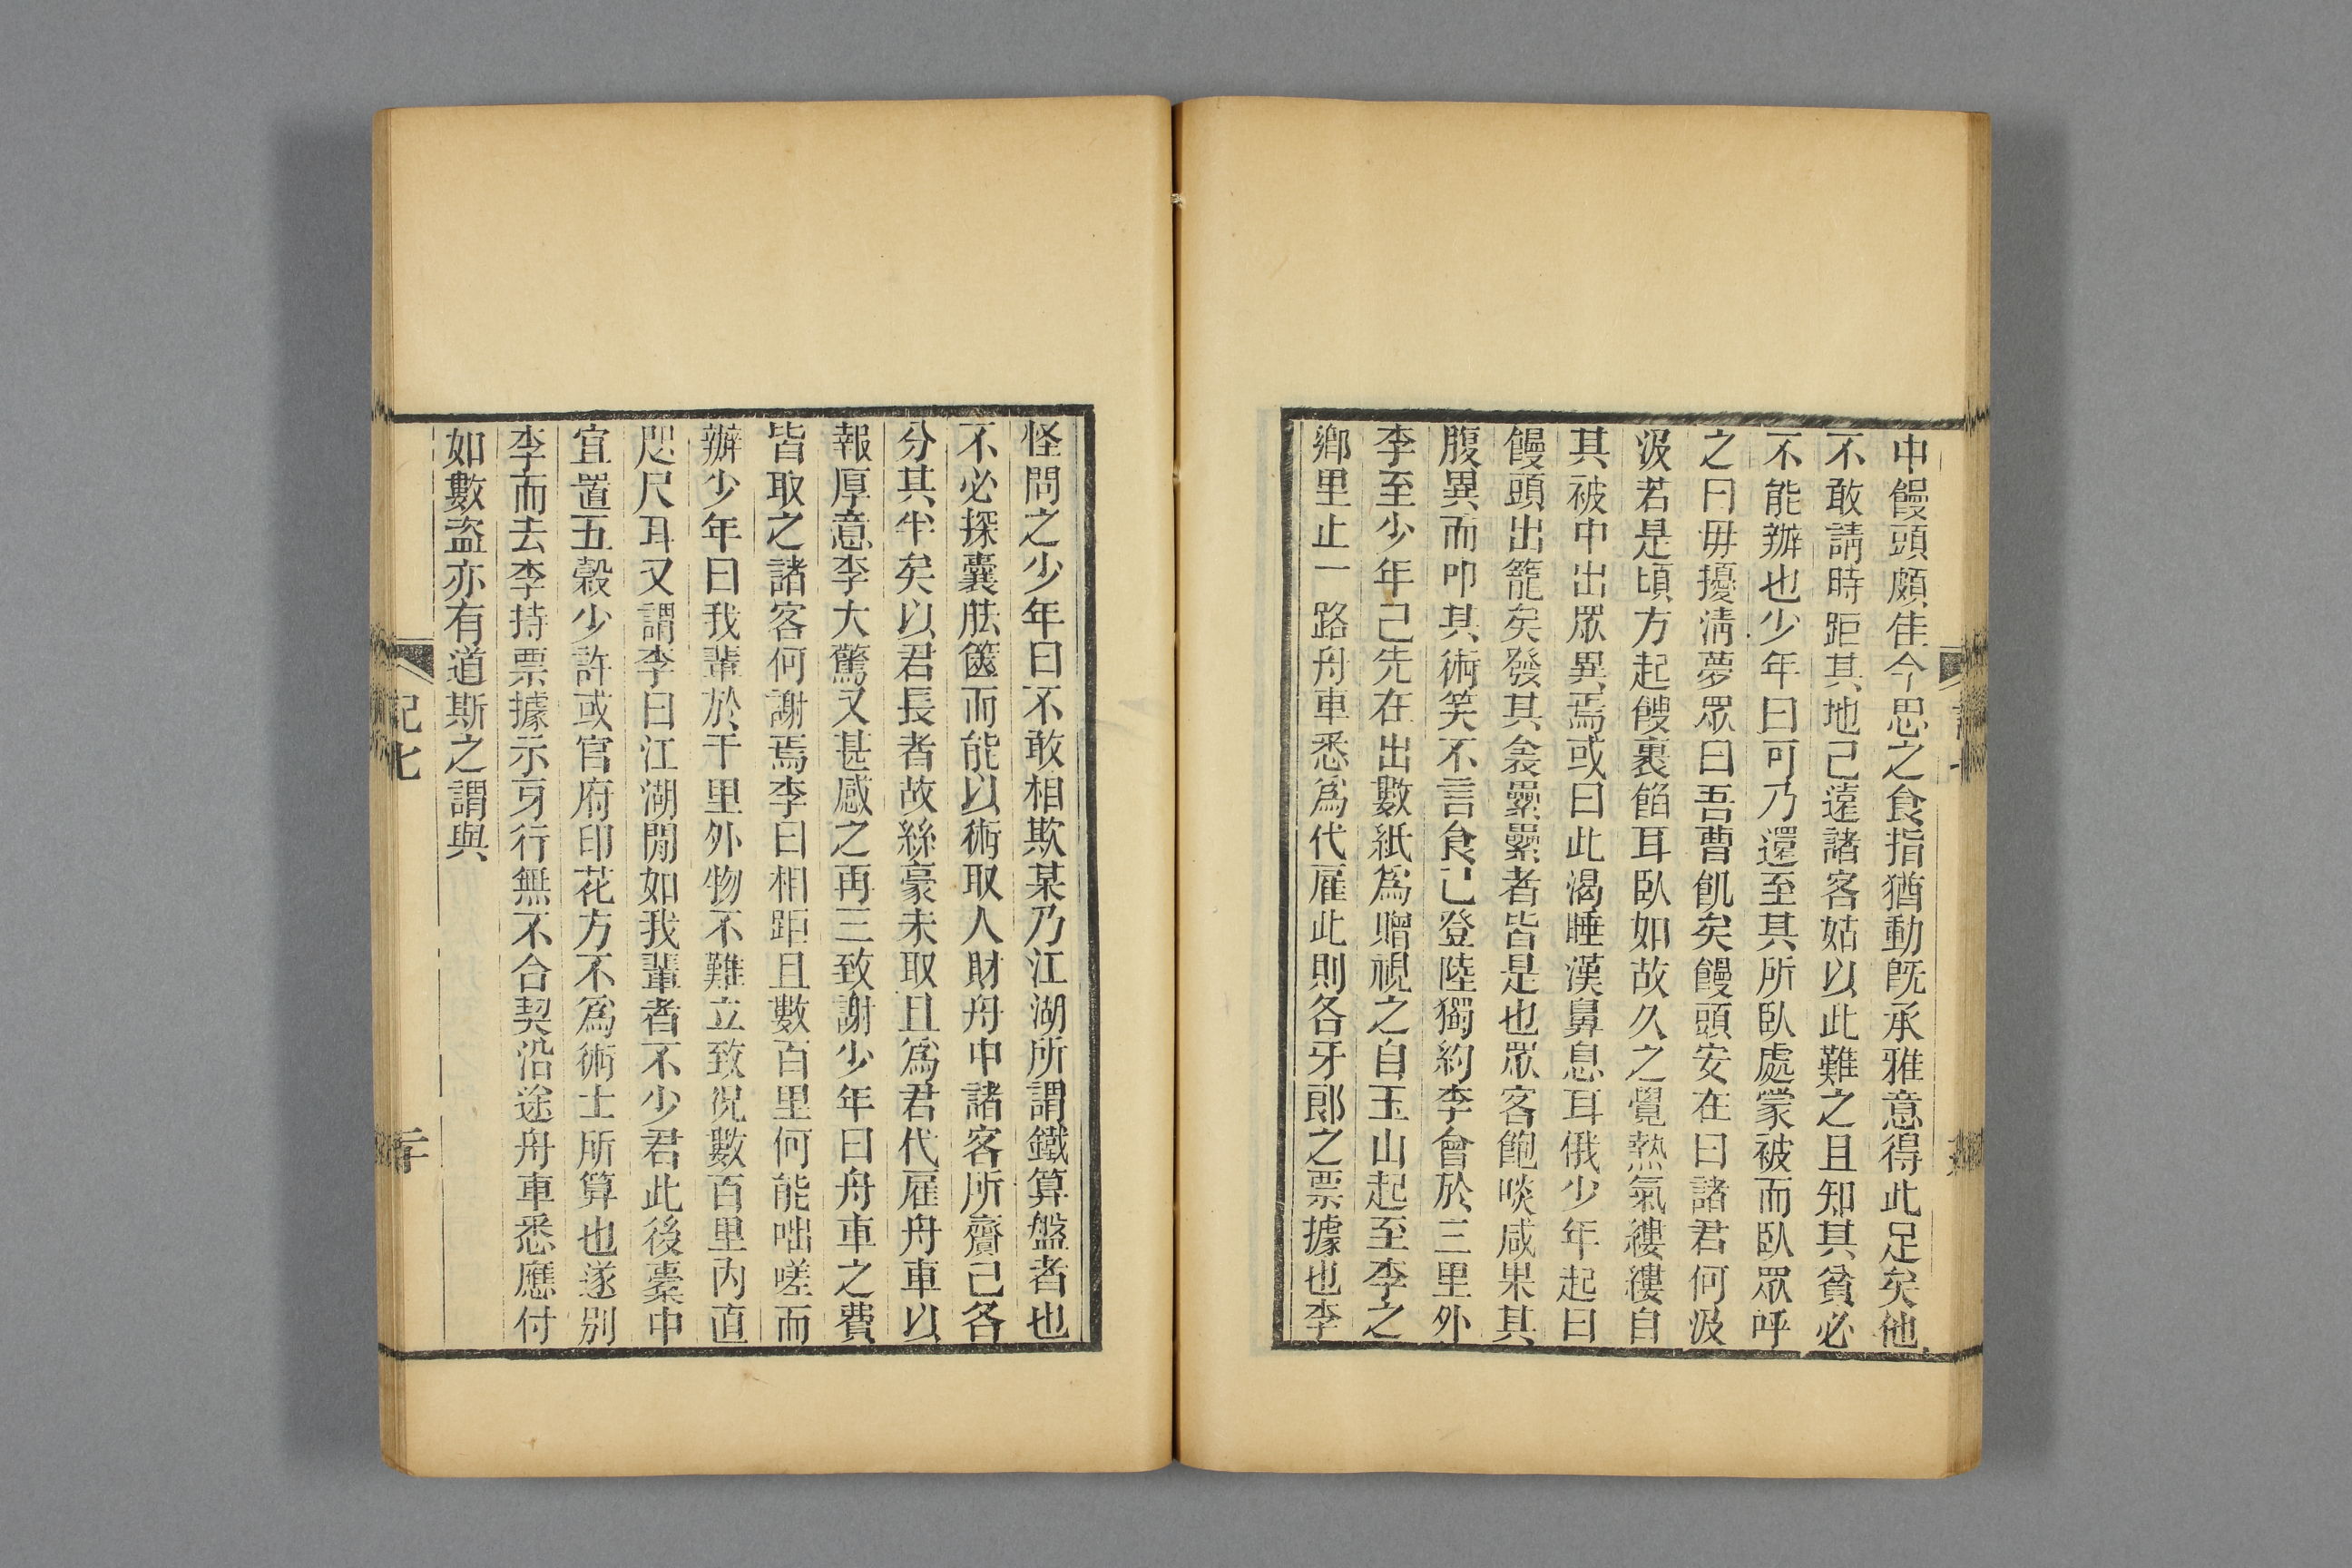 中饅頭頗佳今思之食指猶動旣承雅意得此足矣他
不敢請時距其地已遠諸客姑以此難之且知其貧必
不能辦也少年曰可乃還至其所臥處蒙被而臥眾呼
之曰毋擾淸夢眾曰吾曹飢矣饅頭安在曰諸君何汲
汲若是頃方起餿裹餡耳臥如故久之覺熱氣縷縷自
其被中出眾異焉或曰此渴睡漢鼻息耳俄少年起曰
饅頭出籠矣發其衾纍纍者皆是也眾客飽啖咸果其
腹異而叩其術笑不言食已登陸獨約李會於三里外
李至少年已先在出數紙爲贈視之自玉山起至李之
鄉里止一路舟車悉爲代雇此則各牙郎之票據也李
怪問之少年曰不敢相欺某乃江湖所謂鐵算盤者也
不必探囊胠篋而能以術取人財舟中諸客所齎已各
分其半矣以君長者故絲豪未取且爲君代雇舟車以
報厚意李大驚又甚感之再三致謝少年曰舟車之費
皆取之諸客何謝焉李曰相距且數百里何能咄嗟而
辦少年曰我輩於千里外物不難立致况數百里內直
咫尺耳又謂李曰江湖閒如我輩者不少君此後橐中
宜置五穀少許或官府印花方不爲術士所算也遂別
李而去李持票據示牙行無不合契沿途舟車悉應付
如數盜亦有道斯之謂與
記七
二十